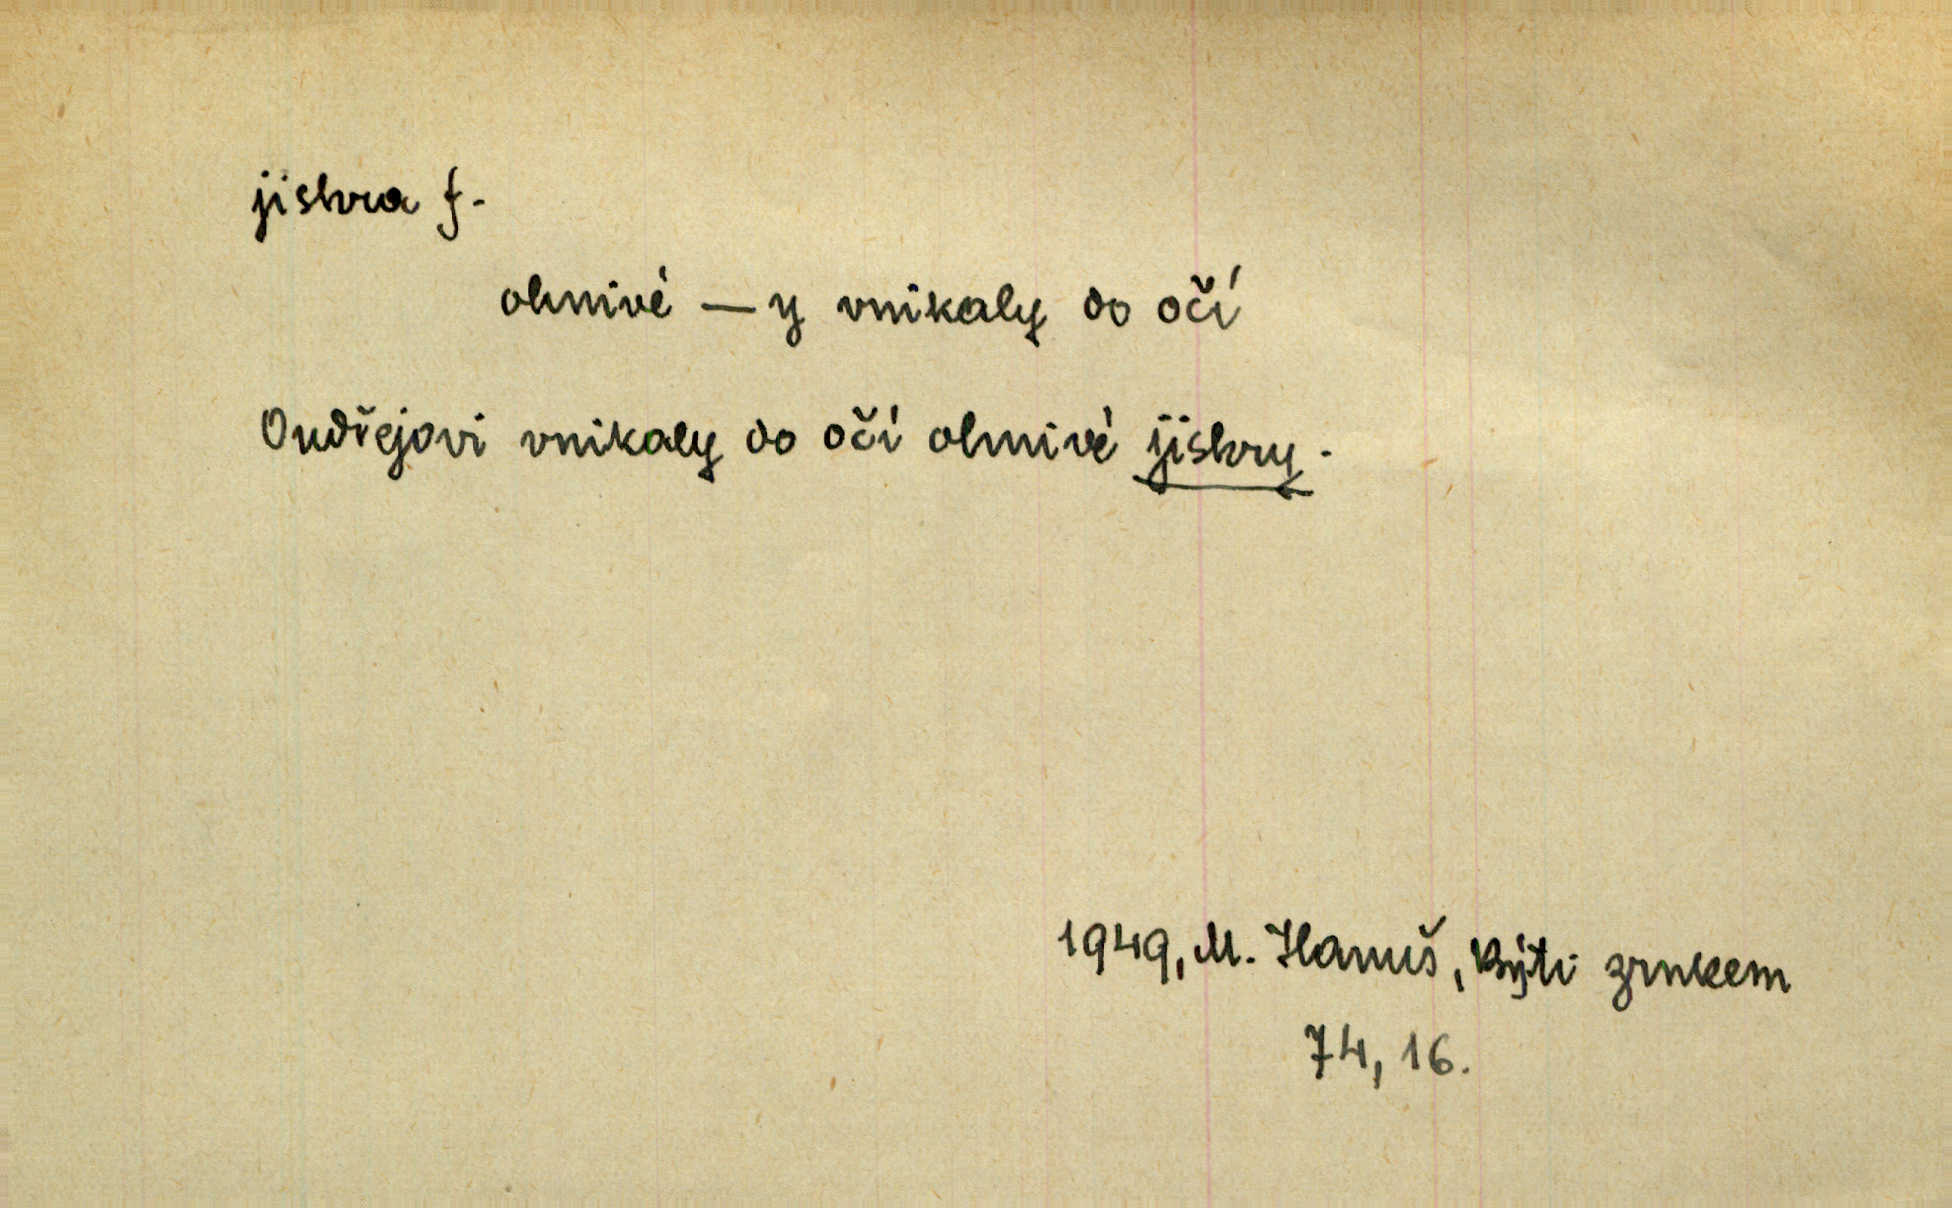 jiskra f.
ohnivé — y vnikaly do očí
Ondřejovi vnikaly do očí ohnivé jiskry.
1949, M. Hanuš, Býti zrnkem
74, 16.